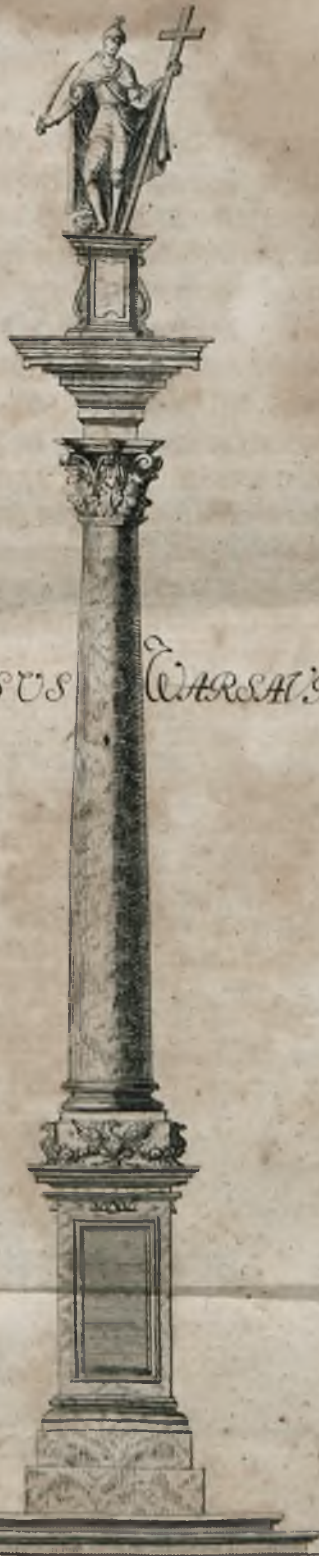 SUS WARSAV